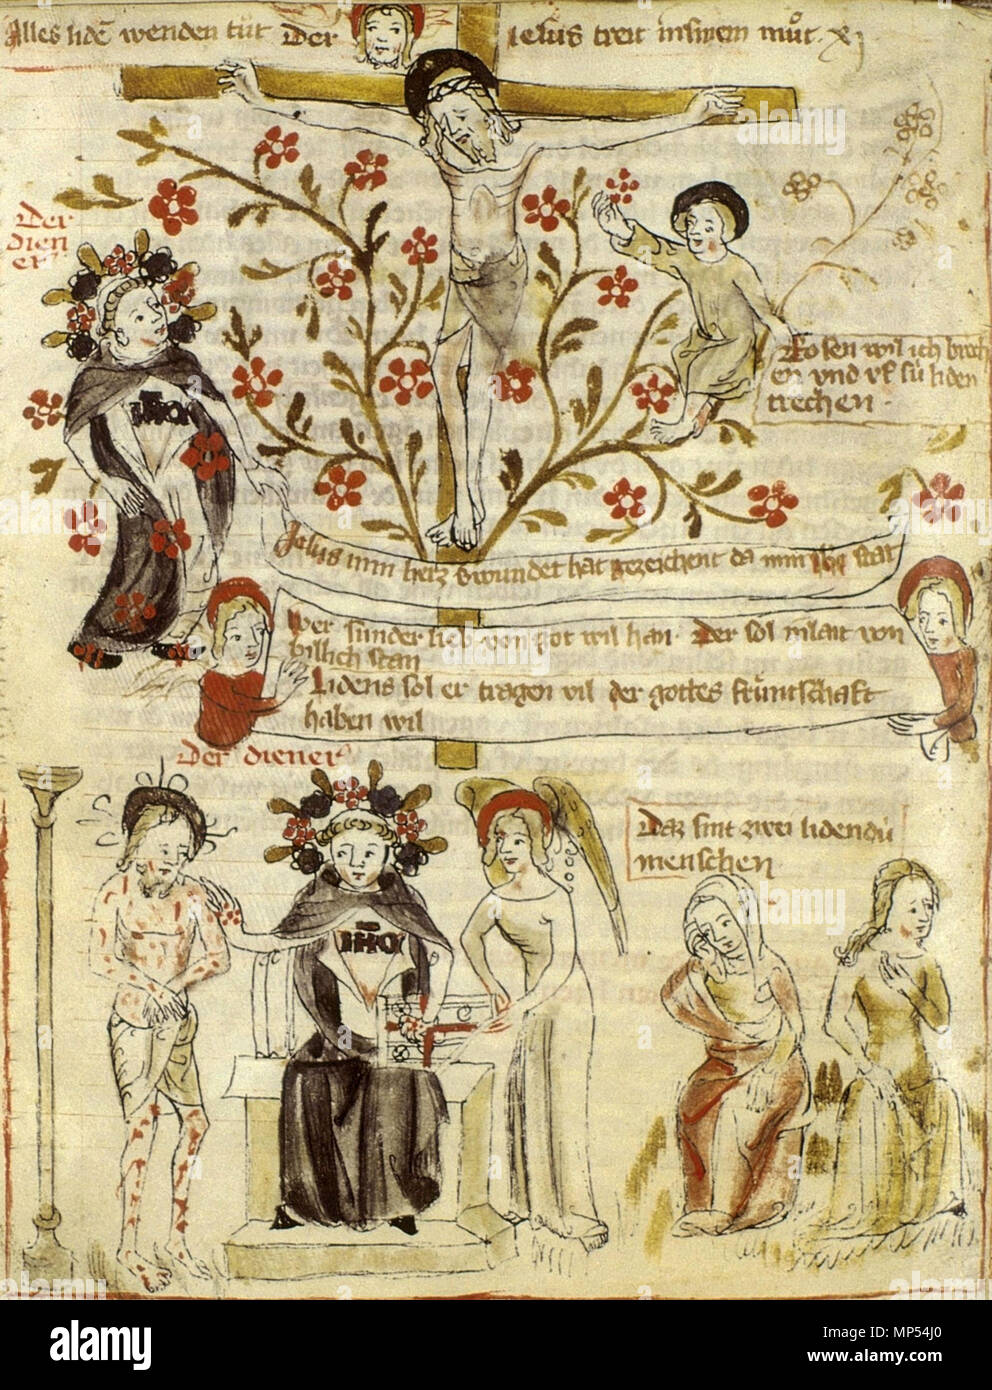 Alles lidē wenden tůt Der Iesus treit in sinem můt. xj
Der
dien
er
Rosen wil ich brech
en vnd vf sú liden
trechen.
Iesus min herz verwundet hat gezeichent da min ihc stat
Wer sunder lieb von got wil han. Der sol n
billich stan
Lidens sol er tragen vil der gottes frúntschaft
haben wil
Der diener
IHC
IHC
Daz sint zwei lidendú
menschen.
alamy
alamy
Image ID: MP54J0
www.alamy.com